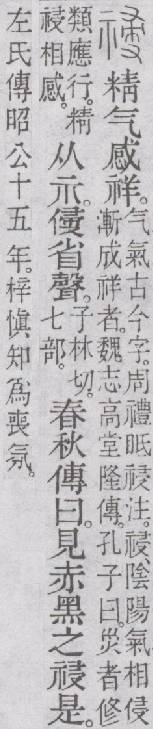 祲
精气感祥。
气氣古今字。周禮眡祲注。祲、陰陽氣相侵
漸成祥者。魏志高堂隆傳。孔子曰。災者修
類應行。精
祲相感。
从示。侵省聲。
子林切。
七部。
春秋傳曰。見赤黑之祲是。
左氏傳昭公十五年。梓愼知爲喪氛。